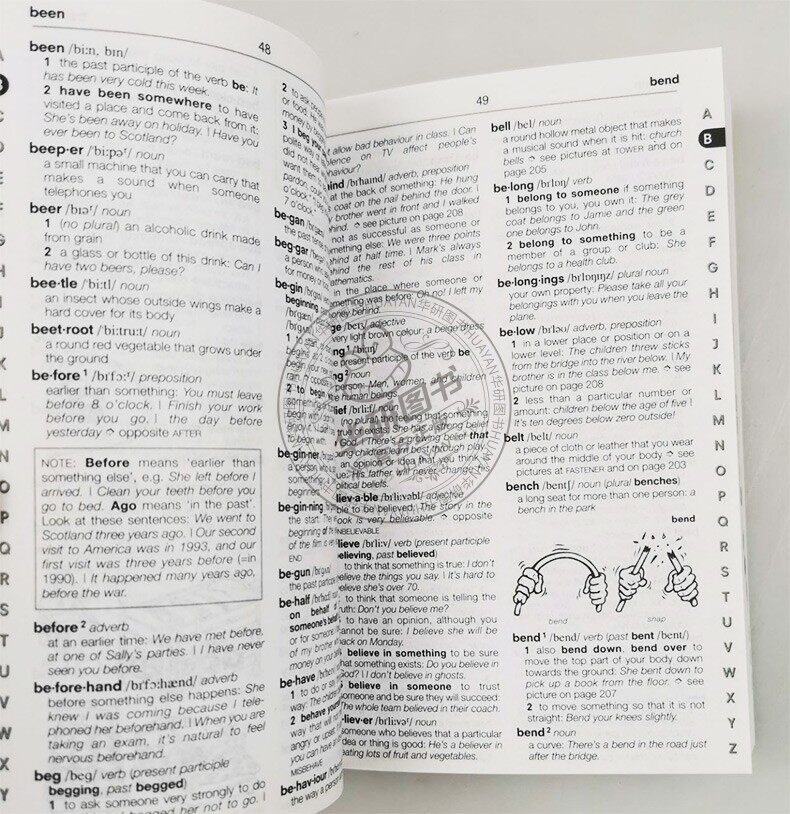 been
48
been /biːn, bɪn/
1 the past participle of the verb be: It
has been very cold this week.
2 have been somewhere to have
visited a place and come back from it:
She's been away on holiday. | Have you
ever been to Scotland?
beep·er /ˈbiːpəʳ/ noun
a small machine that you can carry that
makes a sound when someone
telephones you
beer /bɪəʳ/ noun
1 (no plural) an alcoholic drink made
from grain
2 a glass or bottle of this drink: Can I
have two beers, please?
bee·tle /ˈbiːtl/ noun
an insect whose outside wings make a
hard cover for its body
beet·root /ˈbiːtruːt/ noun
a round red vegetable that grows under
the ground
be·fore¹ /bɪˈfɔːʳ/ preposition
earlier than something: You must leave
before 8 o'clock. | Finish your work
before you go. | the day before
yesterday ⇨ opposite AFTER
NOTE: Before means 'earlier than
something else', e.g. She left before I
arrived. | Clean your teeth before you
go to bed. Ago means 'in the past'.
Look at these sentences: We went to
Scotland three years ago. | Our second
visit to America was in 1993, and our
first visit was three years before (=in
1990). | It happened many years ago,
before the war.
before² adverb
at an earlier time: We have met before,
at one of Sally's parties. | I have never
seen you before.
be·fore·hand /bɪˈfɔːhænd/ adverb
before something else happens: She
knew I was coming because I tele-
phoned her beforehand. | When you are
taking an exam, it's natural to feel
nervous beforehand.
beg /beg/ verb (present participle
begging, past begged)
1 to ask someone very strongly to do
begged her not to go. |
2 to ask people
or food
money
3 I beg your
polite way
did not hear
want them
pardon
o'clock."
7 o'clock."
be·gan
the past
beg·gar
a person
for money
be·gin
beginning
began
1 to
begins at
2 to begin
be·gin·ner
a person who
something
beginners
be·gin·ning
the start: The
beginning of the
of the film is very
END
be·gun /bɪˈgʌn/
the past participle
be·half
on behalf
someone's behalf
or for someone
of my brother
money on your
be·have
1 to do or
way: The
2 behave yourself
way that will
angry or upset
you can have
MISBEHAVE
be·hav·iour
the way a person
49
bend
allow bad behaviour in class. | Can
violence on TV affect people's
behaviour?
/bɪˈhaɪnd/ adverb, preposition
at the back of something: He hung
coat on the nail behind the door. |
brother went in front and I walked
⇨ see picture on page 208
not as successful as someone or
something else: We were three points
behind at half time. | Mark's always
behind the rest of his class in
mathematics.
in the place where someone or
something was before: Oh no! I left my
money behind.
/beɪʒ/ adjective
very light brown colour: a beige dress
being¹ /ˈbiːɪŋ/
the present participle of the verb be
being² noun
person: Men, women, and children
are human beings.
belief /bɪˈliːf/ noun
something
God. | She has a strong belief
There's growing belief that
young children learn best through play.
an opinion or idea that you think
true: His father will never change his
political beliefs.
believ·a·ble /bɪˈliːvəbl/ adjective
able to be believed: The story in the
book is very believable. ⇨ opposite
UNBELIEVABLE
believe /bɪˈliːv/ verb (present participle
believing, past believed)
to think that something is true: I don't
believe the things you say. | It's hard to
believe she's over 70.
to think that someone is telling the
truth: Don't you believe me?
to have an opinion, although you
cannot be sure: I believe she will be
back on Monday.
believe in something to be sure
that something exists: Do you believe in
God? | I don't believe in ghosts.
believe in someone to trust
someone and be sure they will succeed:
The whole team believed in their coach.
believ·er /bɪˈliːvəʳ/ noun
someone who believes that a particular
idea or thing is good: He's a believer in
eating lots of fruit and vegetables.
bell /bel/ noun
a round hollow metal object that makes
a musical sound when it is hit: church
bells ⇨ see pictures at TOWER and on
page 205
be·long /bɪˈlɒŋ/ verb
1 belong to someone if something
belongs to you, you own it: The grey
coat belongs to Jamie and the green
one belongs to John.
2 belong to something to be a
member of a group or club: She
belongs to a health club.
be·long·ings /bɪˈlɒŋɪŋz/ plural noun
your own property: Please take all your
belongings with you when you leave the
plane.
be·low /bɪˈləʊ/ adverb, preposition
1 in a lower place or position or on a
lower level: The children threw sticks
from the bridge into the river below. | My
brother is in the class below me. ⇨ see
picture on page 208
2 less than a particular number or
amount: children below the age of five |
It's ten degrees below zero outside!
belt /belt/ noun
a piece of cloth or leather that you wear
around the middle of your body ⇨ see
pictures at FASTENER and on page 203
bench /bentʃ/ noun (plural benches)
a long seat for more than one person: a
bench in the park
bend
bend
snap
bend¹ /bend/ verb (past bent /bent/)
1 also bend down, bend over to
move the top part of your body down
towards the ground: She bent down to
pick up a book from the floor. ⇨ see
picture on page 207
2 to move something so that it is not
straight: Bend your knees slightly.
bend² noun
a curve: There's a bend in the road just
after the bridge.
A
B
C
D
E
F
G
H
I
J
K
L
M
N
O
P
Q
R
S
T
U
V
W
X
Y
Z
华研图书
HUAYAN